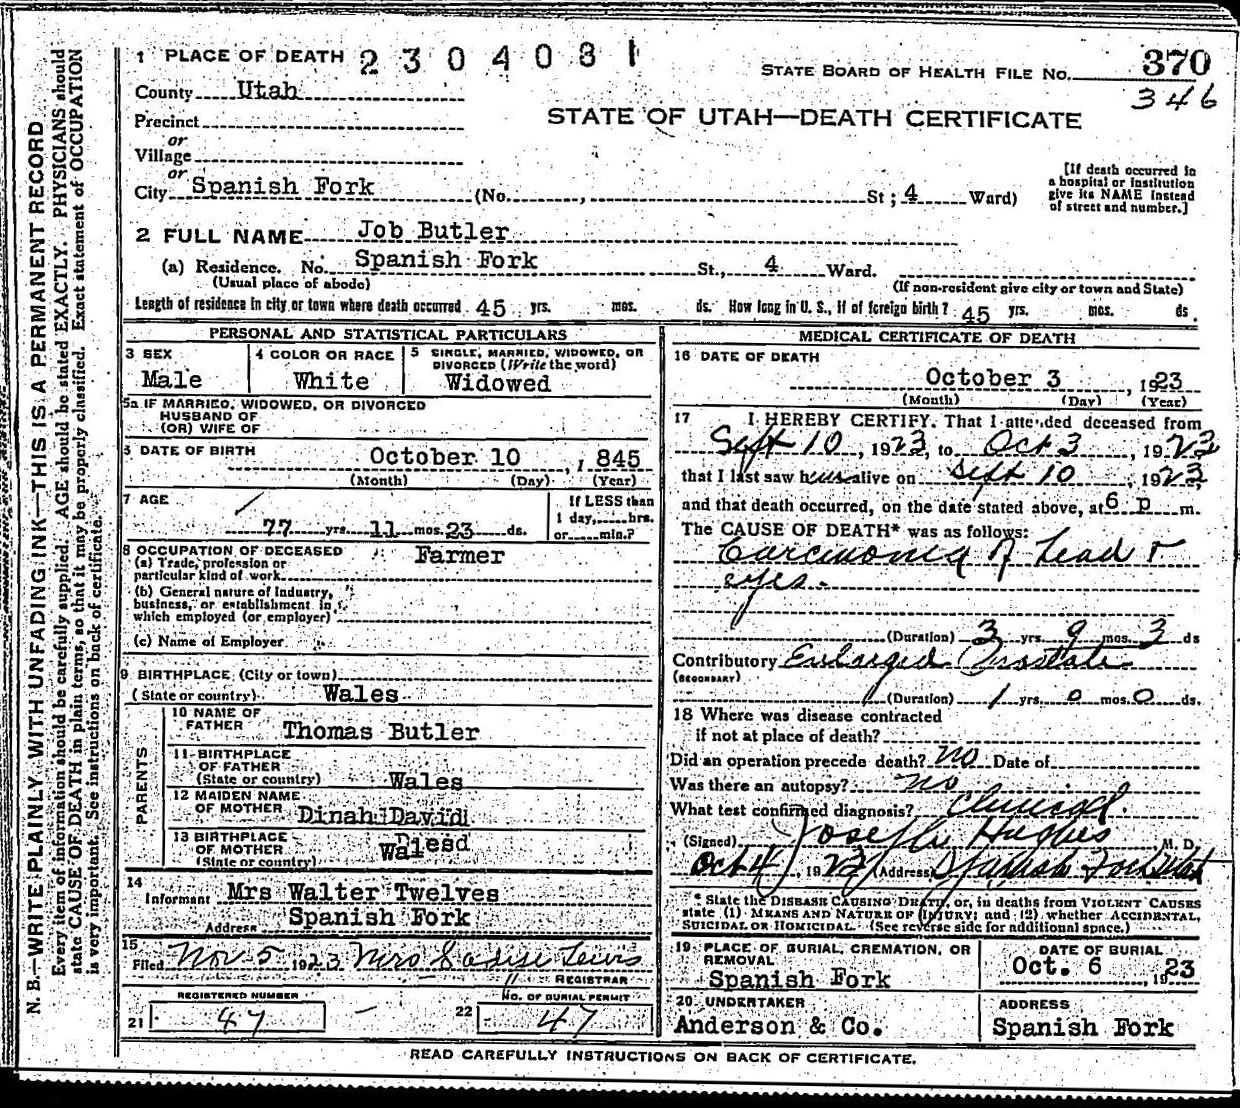 1 PLACE OF DEATH 2304081
STATE BOARD OF HEALTH FILE No. 370
346
County Utah
STATE OF UTAH—DEATH CERTIFICATE
Precinct
or
Village
or
City Spanish Fork (No. , St; 4 Ward)
[If death occurred in
a hospital or institution
give its NAME instead
of street and number.]
2 FULL NAME Job Butler
(a) Residence. No. Spanish Fork St., 4 Ward.
(Usual place of abode) (If non-resident give city or town and State)
Length of residence in city or town where death occurred 45 yrs. mos. ds. How long in U. S., if of foreign birth? 45 yrs. mos. ds.
PERSONAL AND STATISTICAL PARTICULARS
3 SEX
Male
4 COLOR OR RACE
White
5 SINGLE, MARRIED, WIDOWED, OR
DIVORCED (Write the word)
Widowed
5a IF MARRIED, WIDOWED, OR DIVORCED
HUSBAND OF
(OR) WIFE OF
6 DATE OF BIRTH
October 10 , 1845
(Month) (Day) (Year)
7 AGE
77 yrs. 11 mos. 23 ds.
If LESS than
1 day, hrs.
or min.?
8 OCCUPATION OF DECEASED
(a) Trade, profession or
particular kind of work
Farmer
(b) General nature of Industry,
business, or establishment in
which employed (or employer)
(c) Name of Employer
9 BIRTHPLACE (City or town)
(State or country) Wales
PARENTS
10 NAME OF
FATHER
Thomas Butler
11 BIRTHPLACE
OF FATHER
(State or country) Wales
12 MAIDEN NAME
OF MOTHER
Dinah David
13 BIRTHPLACE
OF MOTHER
(State or country)
Wales
14
Informant Mrs Walter Twelves
Address Spanish Fork
15
Filed Nov 5 1923 Mrs Lewis
REGISTRAR
REGISTERED NUMBER
21 47
NO. OF BURIAL PERMIT
22 47
MEDICAL CERTIFICATE OF DEATH
16 DATE OF DEATH
October 3 , 1923
(Month) (Day) (Year)
17 I HEREBY CERTIFY. That I attended deceased from
Sept 10 , 1923, to Oct 3 , 1923
that I last saw him alive on Sept 10 , 1923,
and that death occurred, on the date stated above, at 6 p m.
The CAUSE OF DEATH* was as follows:
Carcinoma of head &
eyes.
(Duration) 3 yrs. 9 mos. 3 ds
Contributory Enlarged Prostate
(SECONDARY)
(Duration) 1 yrs. 0 mos. 0 ds.
18 Where was disease contracted
if not at place of death?
Did an operation precede death? no Date of
Was there an autopsy? no
What test confirmed diagnosis? Clinical.
(Signed) Joseph Hughes M. D.
Oct 4 , 1923 (Address) Spanish Fork Utah
* State the DISEASE CAUSING DEATH, or, in deaths from VIOLENT CAUSES
state (1) MEANS AND NATURE OF INJURY; and (2) whether ACCIDENTAL,
SUICIDAL OR HOMICIDAL. (See reverse side for additional space.)
19 PLACE OF BURIAL, CREMATION, OR
REMOVAL
Spanish Fork
DATE OF BURIAL
Oct. 6 , 1923
20 UNDERTAKER
Anderson & Co.
ADDRESS
Spanish Fork
READ CAREFULLY INSTRUCTIONS ON BACK OF CERTIFICATE.
N. B.—WRITE PLAINLY WITH UNFADING INK—THIS IS A PERMANENT RECORD
Every item of information should be carefully supplied. AGE should be stated EXACTLY. PHYSICIANS should
state CAUSE OF DEATH in plain terms, so that it may be properly classified. Exact statement of OCCUPATION
is very important. See instructions on back of certificate.